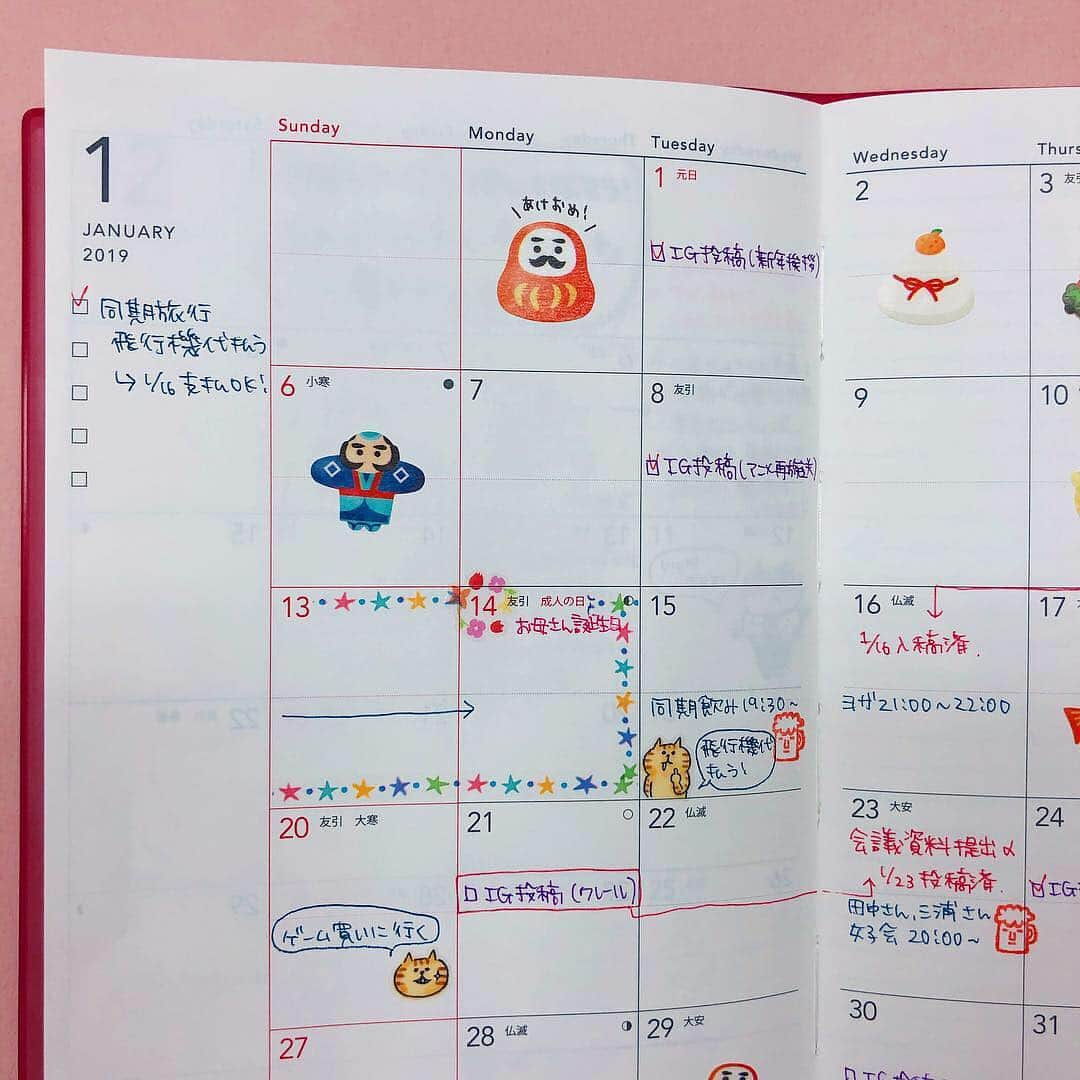 1
JANUARY
2019
同期旅行
飛行機代払う
↳ 1/16 支払OK!
Sunday
Monday
Tuesday
Wednesday
Thurs
あけおめ!
1 元日
IG投稿(新年挨拶)
2
3 友引
6 小寒
7
8 友引
IG投稿(アニメ再放送)
9
10
13
14 友引 成人の日
お母さん誕生日
15
同期飲み 19:30〜
飛行機代
払う!
16 仏滅
1/16 入稿済.
ヨガ 21:00〜22:00
17
20 友引 大寒
ゲーム買いに行く
21
IG投稿(クレール)
22 仏滅
23 大安
会議資料提出〆
1/23 投稿済.
田中さん,三浦さん
女子会 20:00〜
24
IG
27
28 仏滅
29 大安
30
31